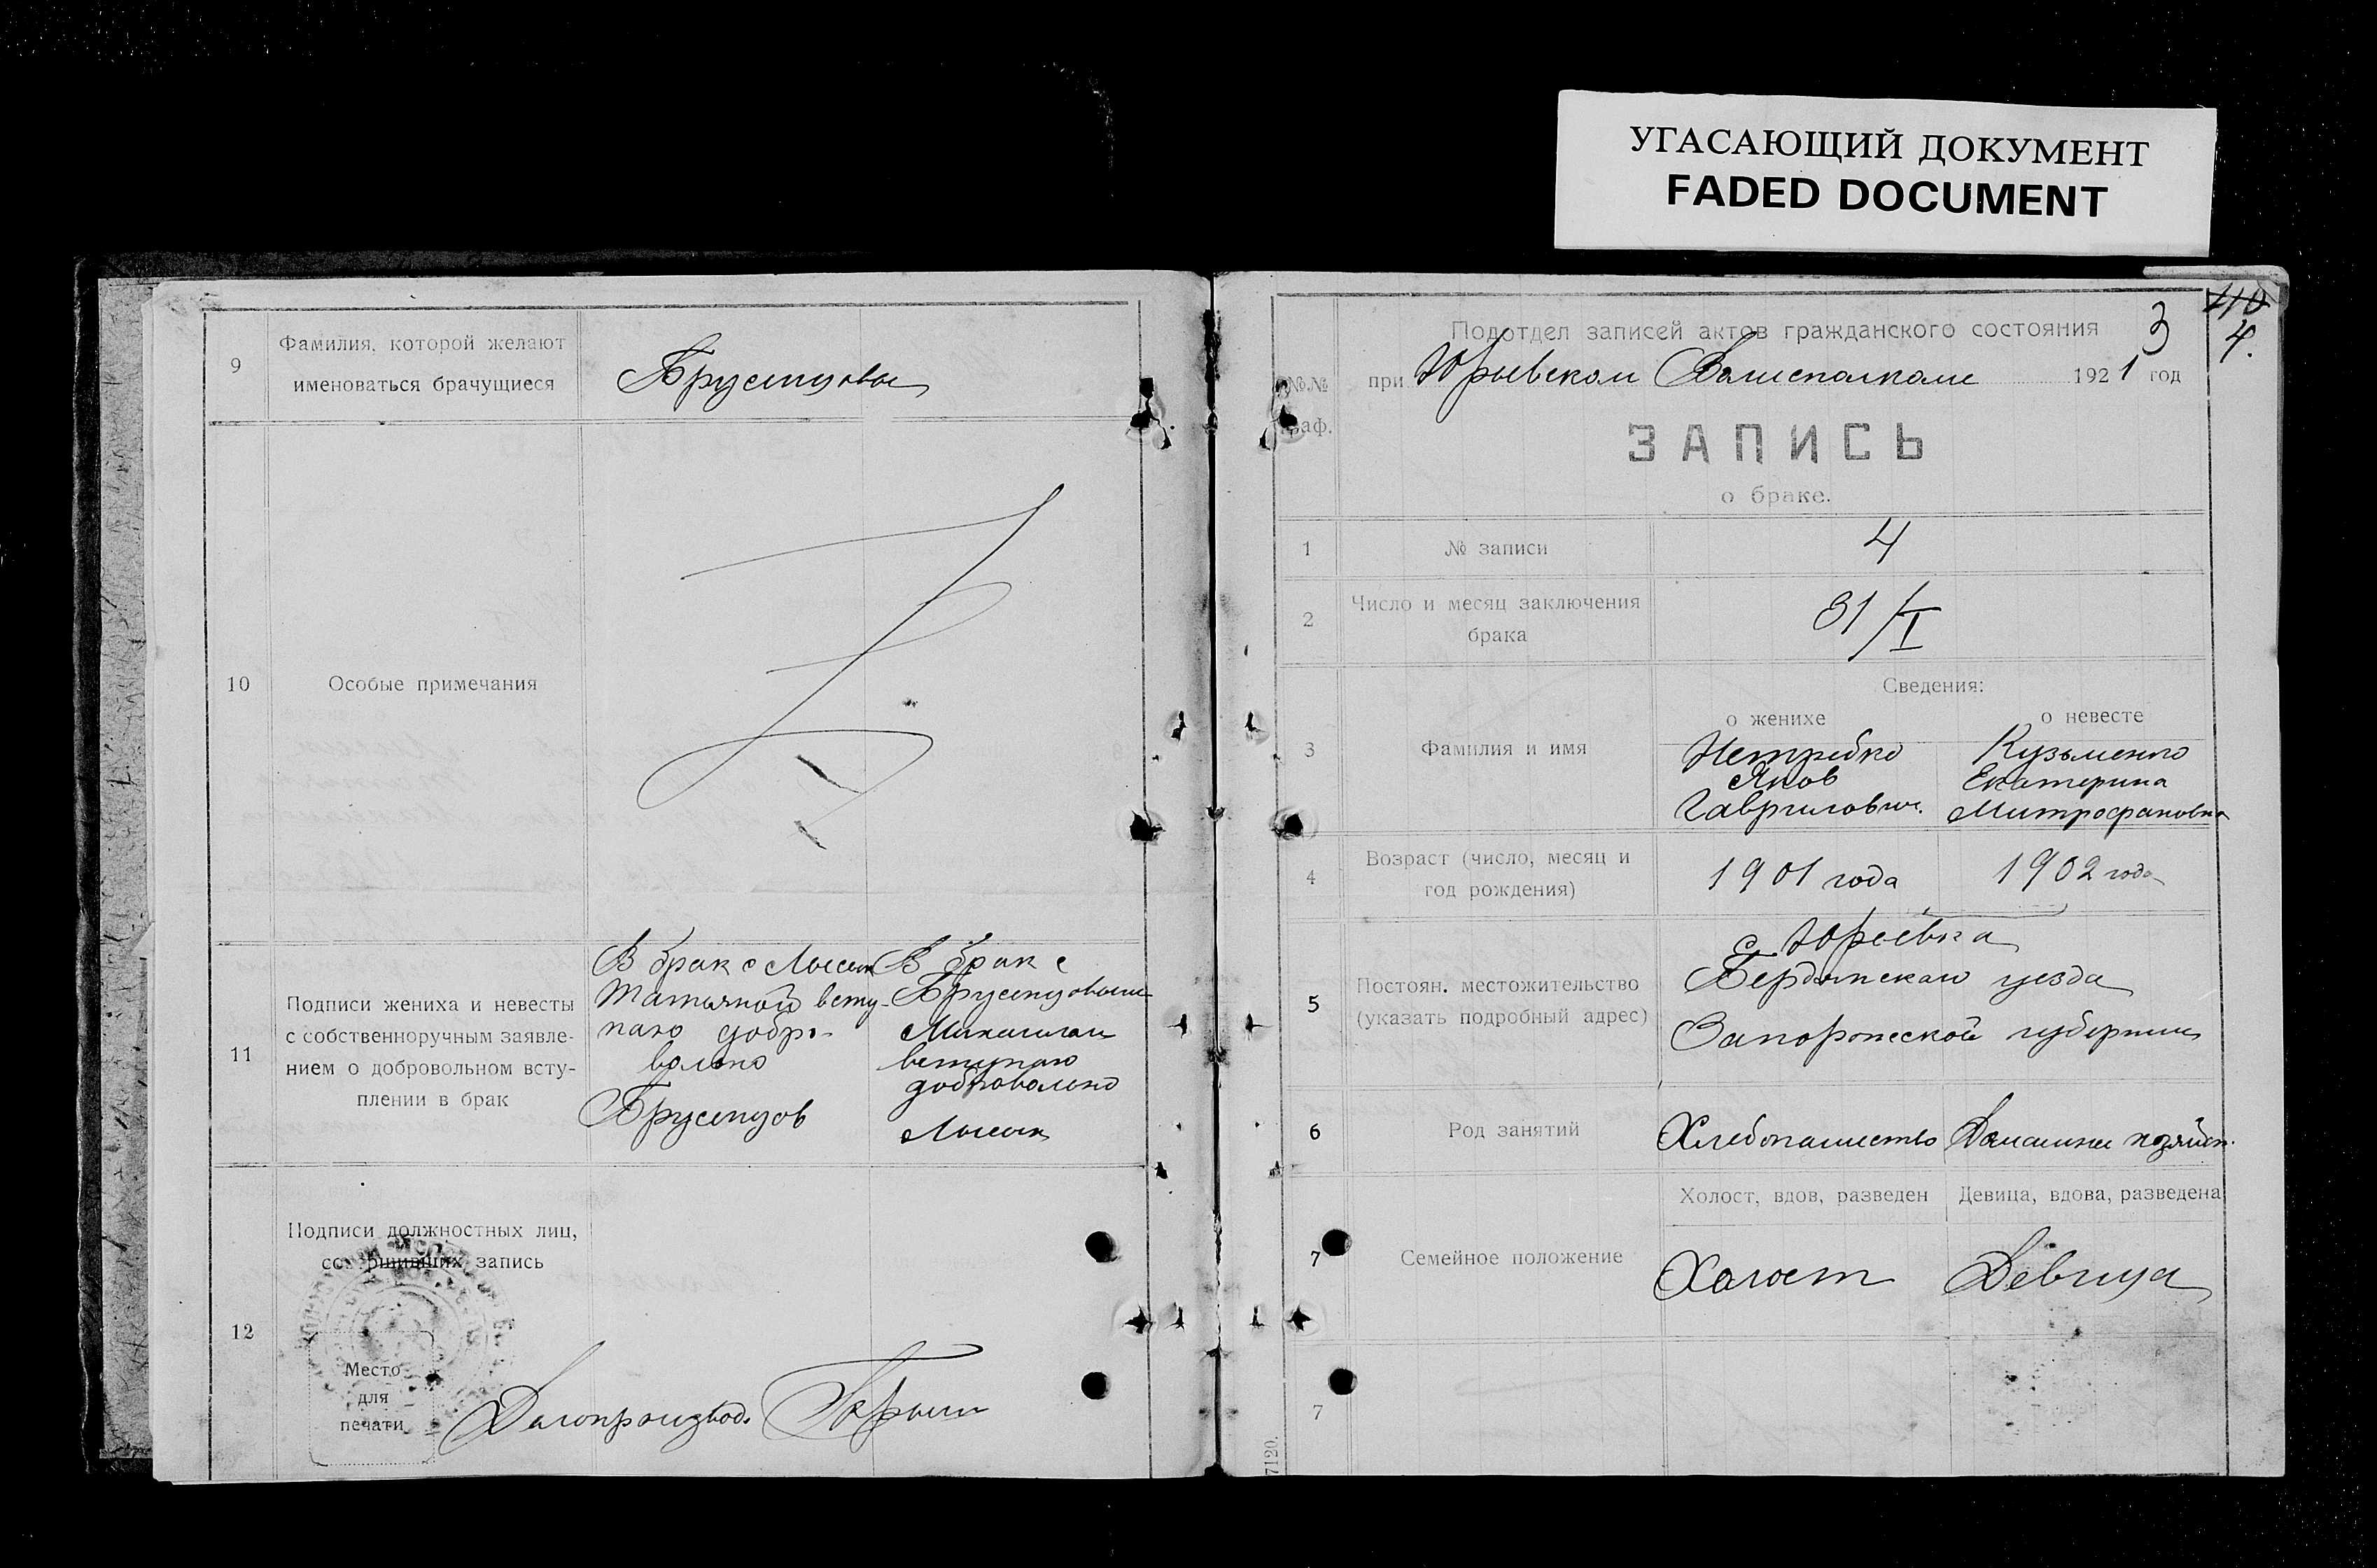 УГАСАЮЩИЙ ДОКУМЕНТ
FADED DOCUMENT
9
Фамилия, которой желают
именоваться брачущиеся
Брусенцовы
10
Особые примечания
11
Подписи жениха и невесты
с собственноручным заявле-
нием о добровольном всту-
плении в брак
В брак с Лысак
Татьяной всту-
паю добро-
вольно
Брусенцов
В брак с
Брусенцовым
Михаилом
вступаю
добровольно
Лысак
12
Подписи должностных лиц,
совершивших запись
Место
для
печати
Делопроизвод.
3
110
4.
№№
граф.
Подотдел записей актов гражданского состояния
при Юрьевском Волисполкоме 1921 год
ЗАПИСЬ
о браке.
1
№ записи
4
2
Число и месяц заключения
брака
31/I
Сведения:
о женихе
о невесте
3
Фамилия и имя
Нетребко
Яков
Гаврилович.
Кузьменко
Екатерина
Митрофановна
4
Возраст (число, месяц и
год рождения)
1901 года
1902 года
5
Постоян. местожительство
(указать подробный адрес)
с. Юрьевка
Бердянскаго уезда
Запорожской губернии
6
Род занятий
Хлебопашество
Домашнее хозяйст.
7
Семейное положение
Холост, вдов, разведен
Девица, вдова, разведена
Холост
Девица
7
7120.